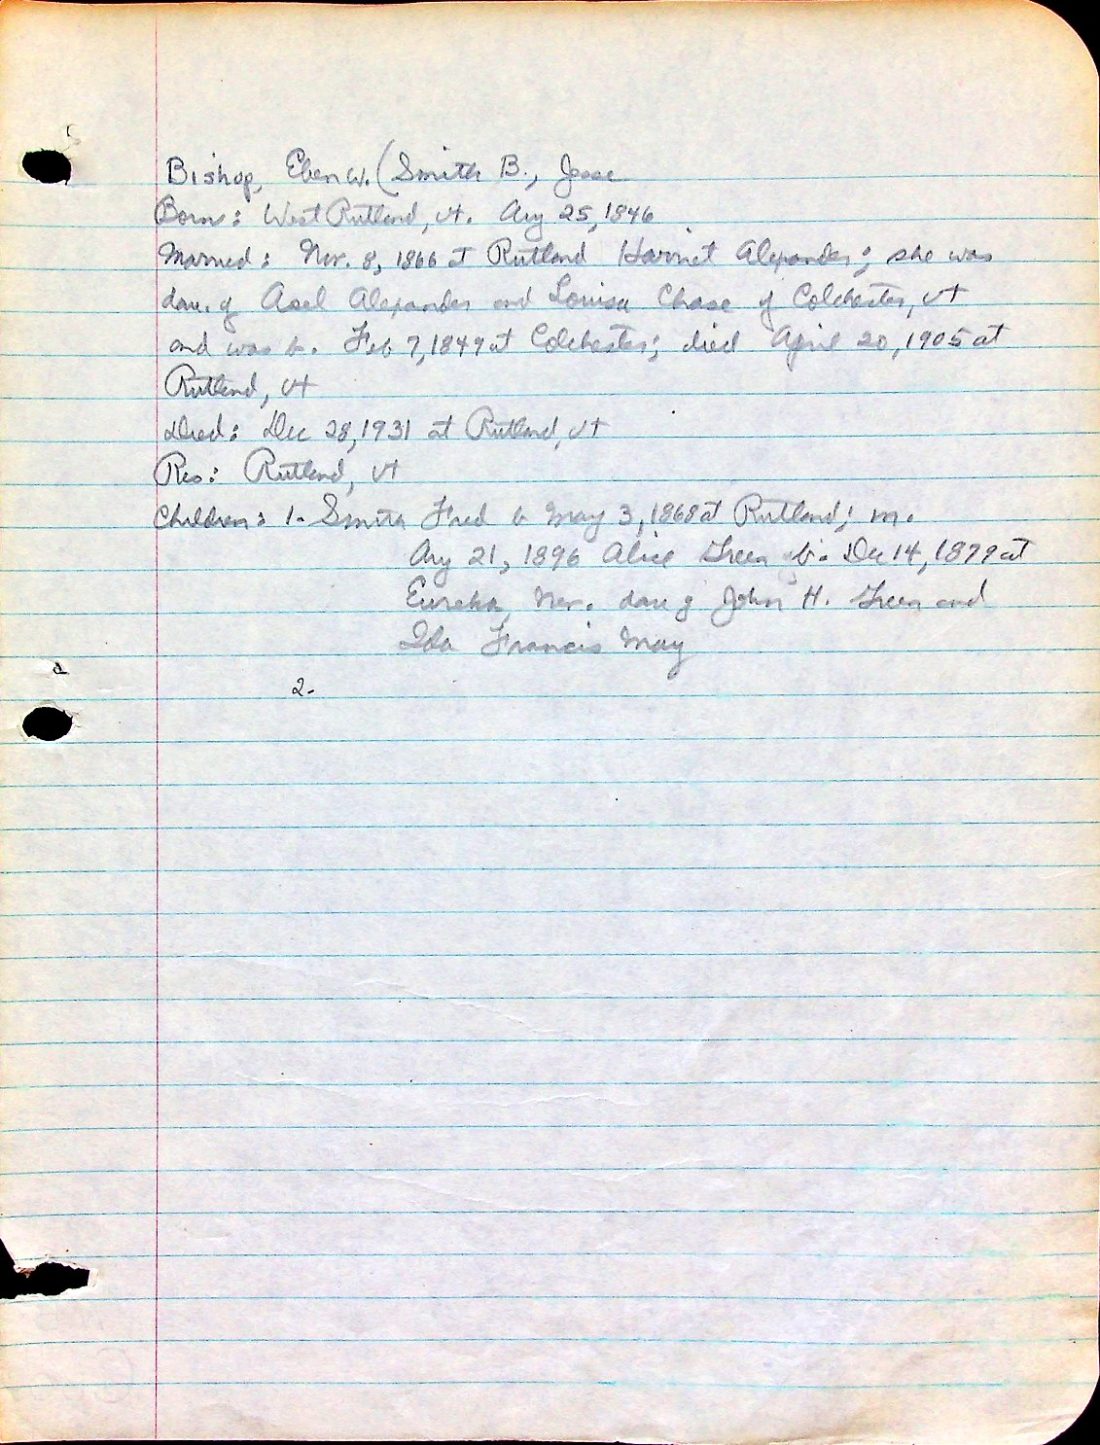 Bishop, Eben W. (Smith B., Jesse
Born: West Rutland, Vt. Aug 25, 1846
Married: Nov. 8, 1866 at Rutland Harriet Alexander; she was
dau. of Asel Alexander and Louisa Chase of Colchester, Vt
and was b. Feb 7, 1849 at Colchester; died April 20, 1905 at
Rutland, Vt
Died: Dec 28, 1931 at Rutland, Vt
Res: Rutland, Vt
Children: 1- Smith Fred b May 3, 1868 at Rutland; m.
Aug 21, 1896 Alice Green b. Dec 14, 1879 at
Eureka, Nev. dau of John H. Green and
Ida Francis May
2-